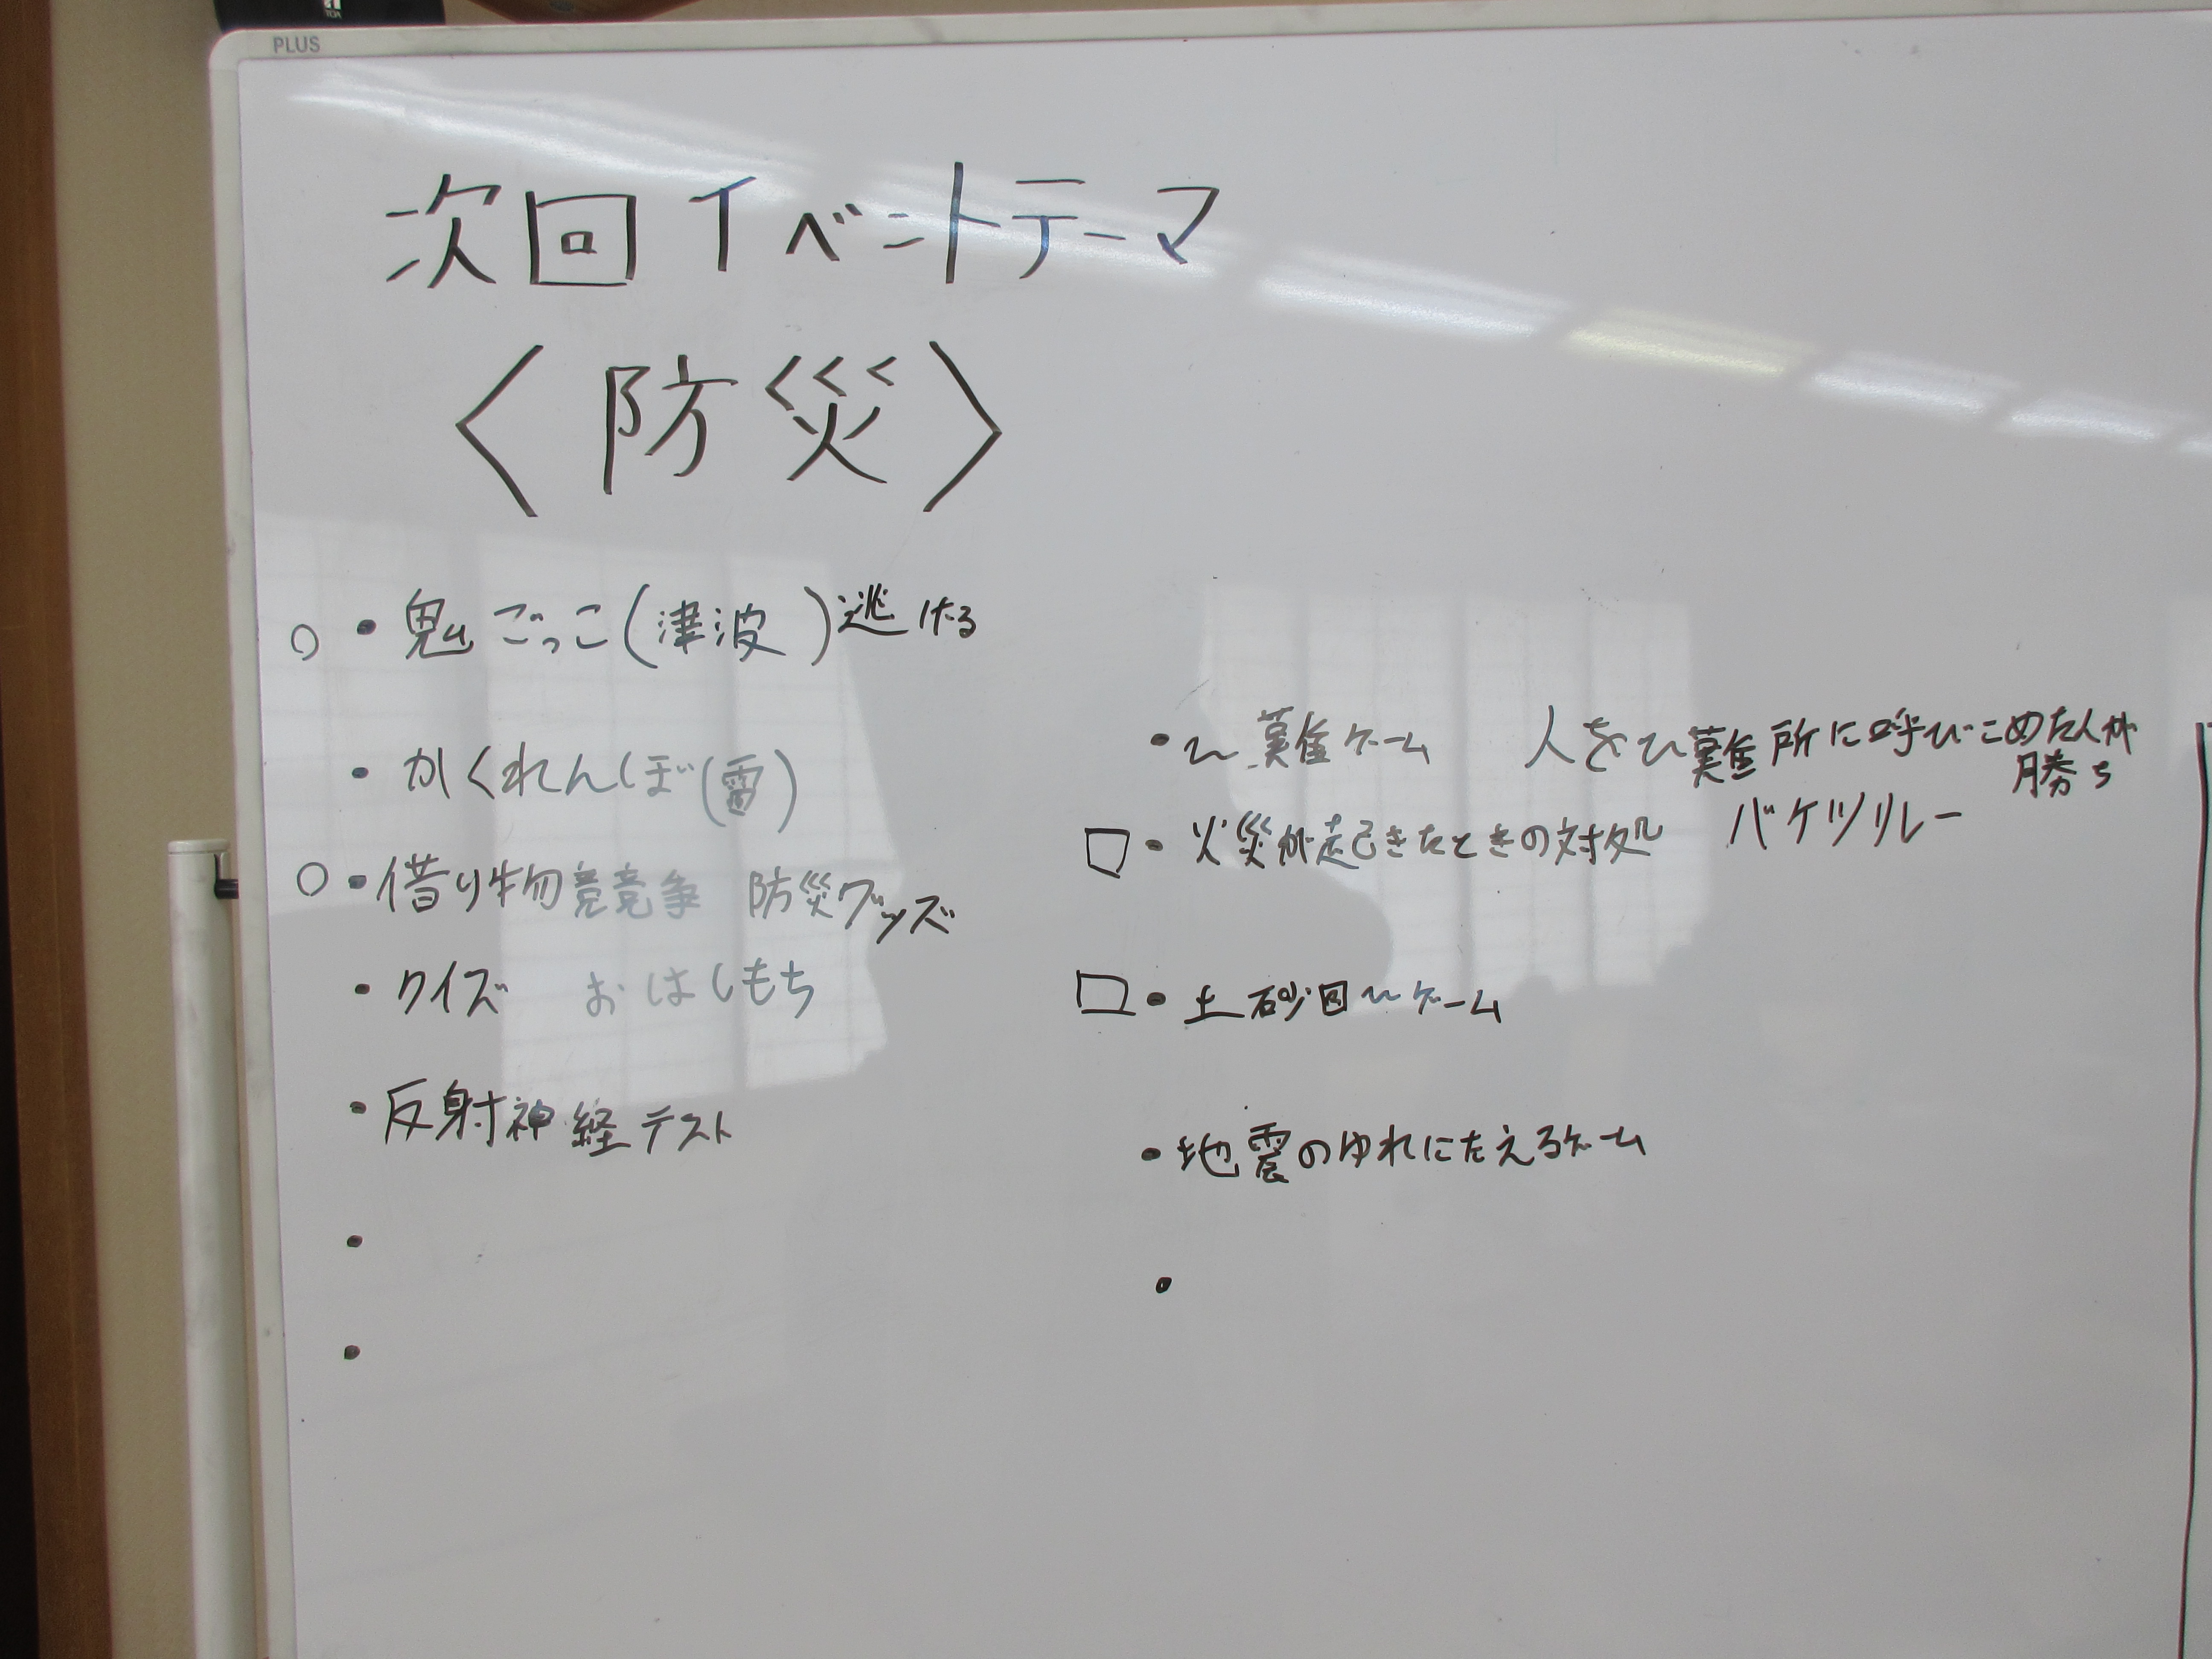 PLUS
TOA
次回イベントテーマ
〈防災〉
○・鬼ごっこ(津波)逃げる
・かくれんぼ(雷)
○・借り物競争 防災グッズ
・クイズ おはしもち
・反射神経テスト
・
・
・ひ難ゲーム 人をひ難所に呼びこめた人が
勝ち
□・火災が起きたときの対処 バケツリレー
□・土砂回ひゲーム
・地震のゆれにたえるゲーム
・